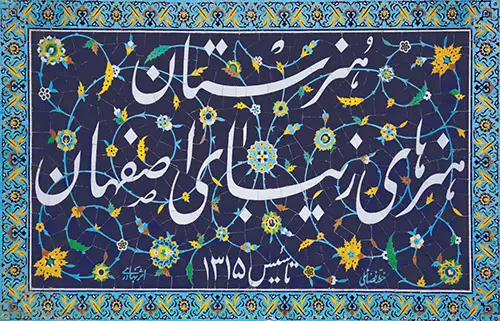 هنرستان
هنرهای زیبای اصفهان
تاسیس ۱۳۱۵